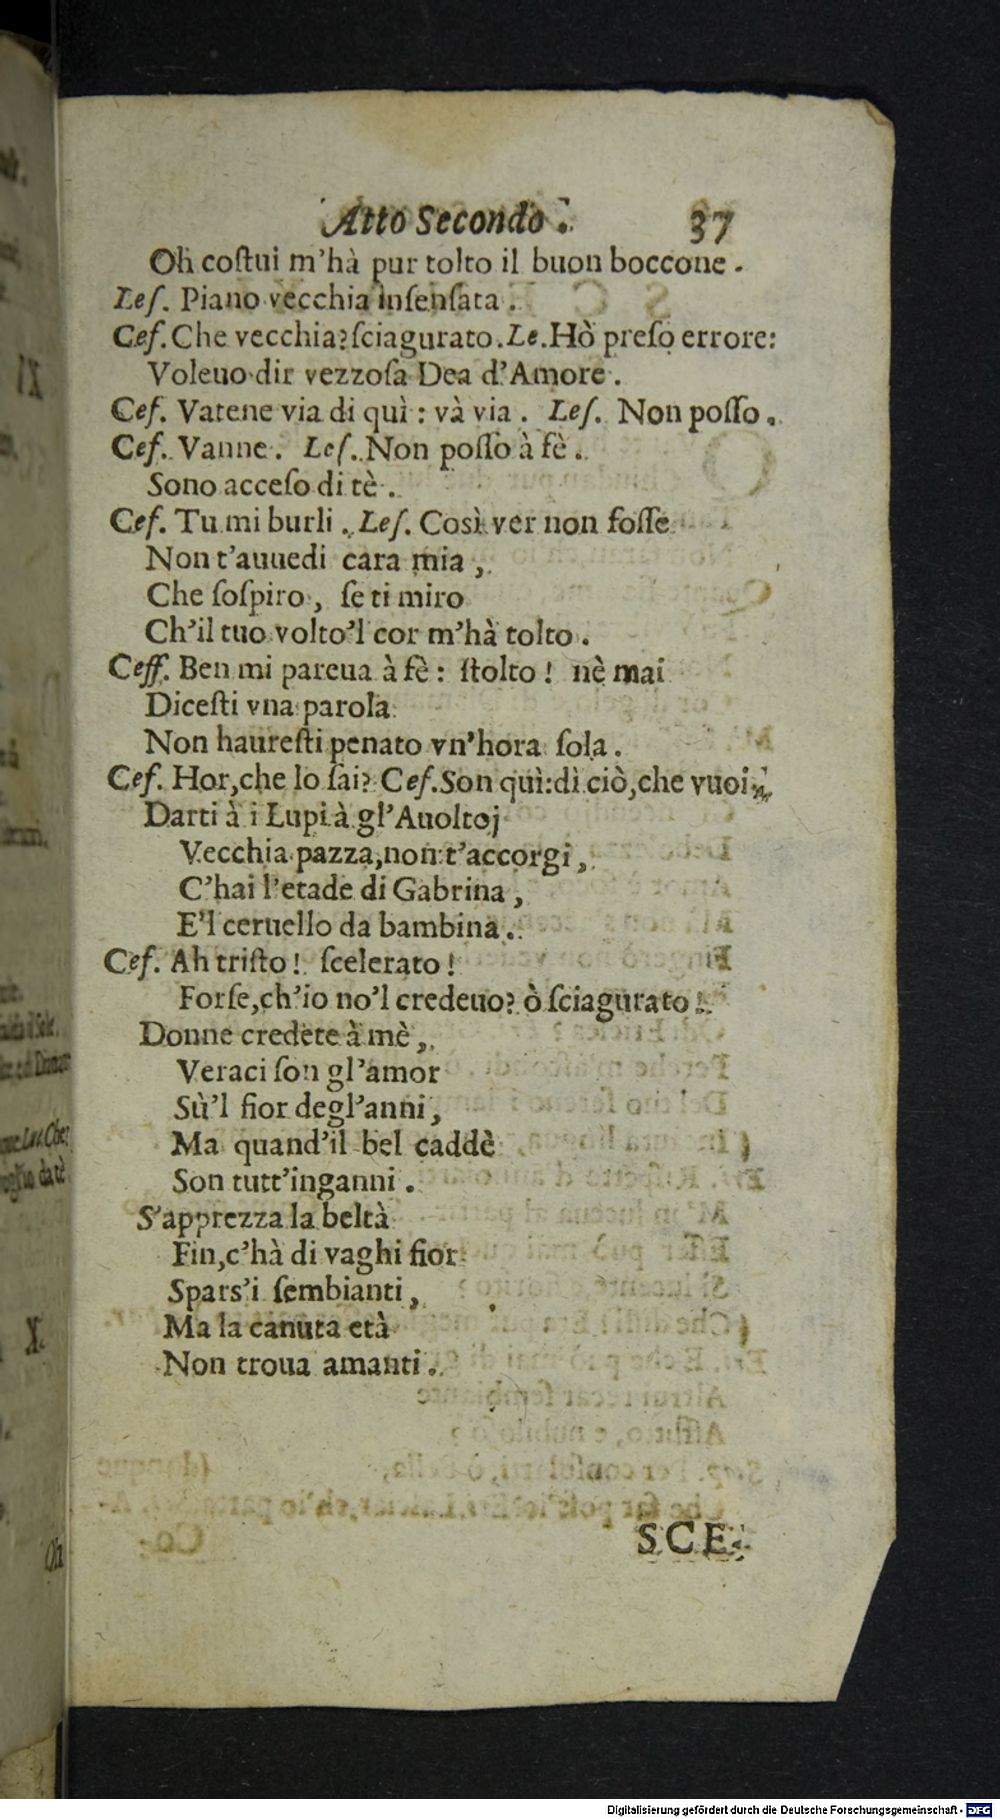 Atto Secondo. 37
Oh coſtui m'hà pur tolto il buon boccone.
Leſ. Piano vecchia inſenſata.
Ceſ. Che vecchia? ſciagurato. Le. Hò preſo errore:
Voleuo dir vezzoſa Dea d'Amore.
Ceſ. Vatene via di quì: và via. Leſ. Non poſſo.
Ceſ. Vanne. Leſ. Non poſſo à fè.
Sono acceſo di tè.
Ceſ. Tu mi burli. Leſ. Così ver non foſſe
Non t'auuedi cara mia,
Che ſoſpiro, ſe ti miro
Ch'il tuo volto'l cor m'hà tolto.
Ceff. Ben mi pareua à fè: ſtolto! nè mai
Diceſti vna parola
Non haureſti penato vn'hora ſola.
Ceſ. Hor, che lo ſai? Ceſ. Son quì: dì ciò, che vuoi
Darti à i Lupi à gl'Auoltoj
Vecchia pazza, non t'accorgi,
C'hai l'etade di Gabrina,
E'l ceruello da bambina.
Ceſ. Ah triſto! ſcelerato!
Forſe, ch'io no'l credeuo? ò ſciagurato!
Donne credete à mè,
Veraci ſon gl'amor
Sù'l fior degl'anni,
Ma quand'il bel caddè
Son tutt'inganni.
S'apprezza la beltà
Fin, c'hà di vaghi fior
Spars'i ſembianti,
Ma la canuta età
Non troua amanti.
SCE
IX
X.
Oh
Digitalisierung gefördert durch die Deutsche Forschungsgemeinschaft - DFG